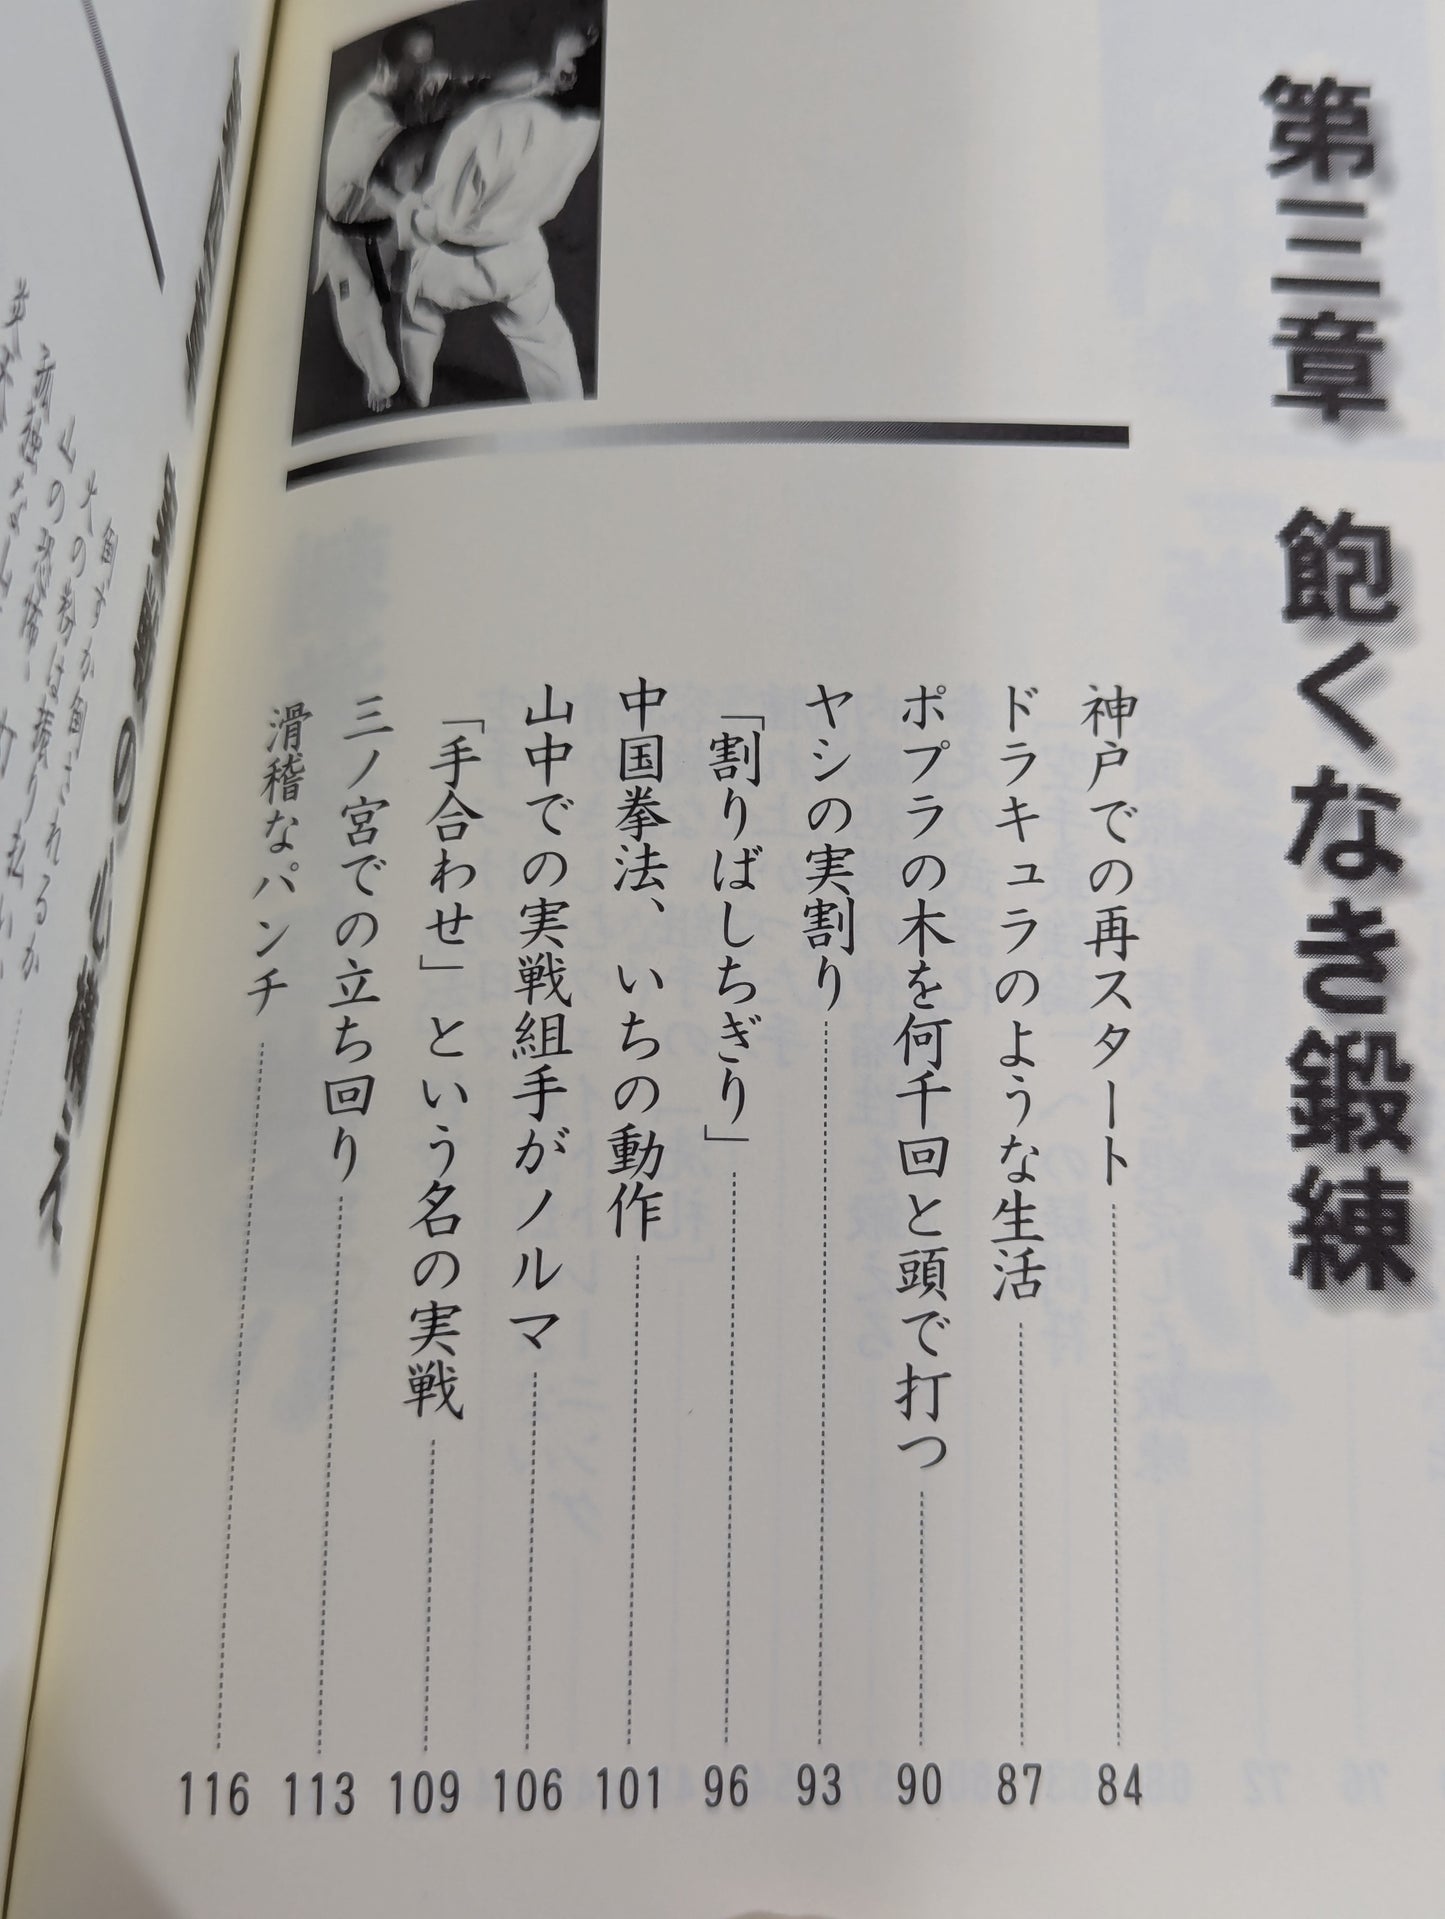 第三章 飽くなき鍛練
神戸での再スタート 84
ドラキュラのような生活 87
ポプラの木を何千回と頭で打つ 90
ヤシの実割り 93
「割りばしちぎり」 96
中国拳法、いちの動作 101
山中での実戦組手がノルマ 106
「手合わせ」という名の実戦 109
三ノ宮での立ち回り 113
滑稽なパンチ 116
の心構え